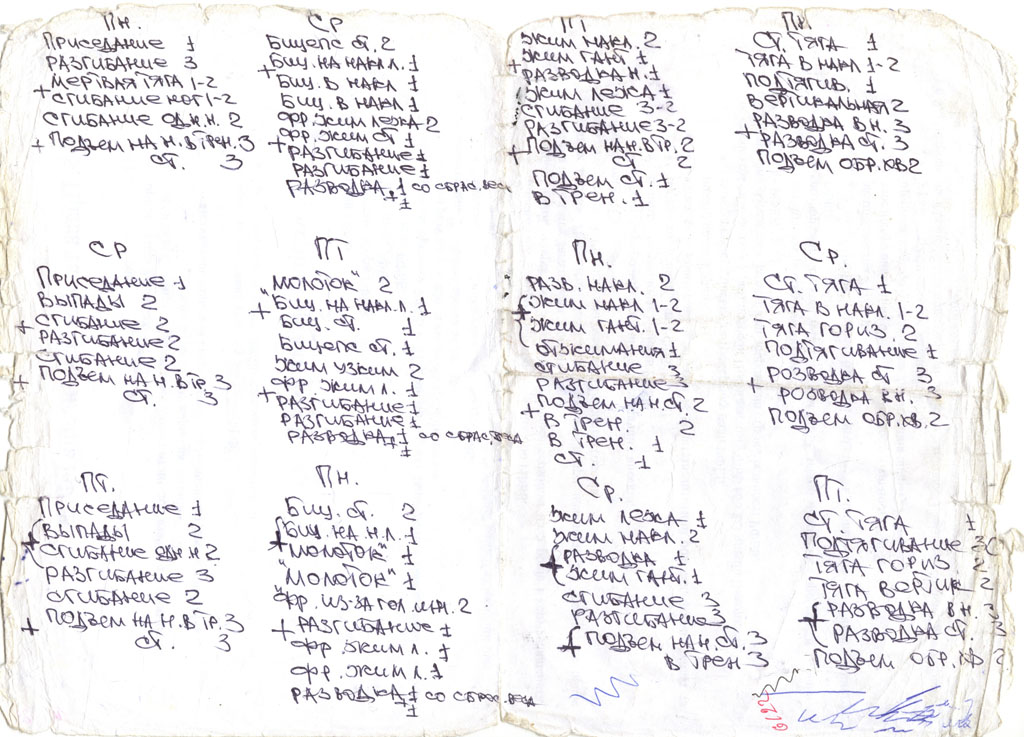 ПН.
ПРИСЕДАНИЕ 1
РАЗГИБАНИЕ 3
МЕРТВАЯ ТЯГА 1-2
+ СГИБАНИЕ КОТ 1-2
СГИБАНИЕ ОДН.Н. 2
+ ПОДЪЕМ НА Н. В ТРЕН. 3
СТ. 3
СР
БИЦЕПС СТ. 2
+ БИЦ. НА НАКЛ. Л. 1
БИЦ. В НАКЛ 1
БИЦ. В НАКЛ 1
ФР. ЖИМ ЛЕЖА 2
+ ФР. ЖИМ СТ 1
РАЗГИБАНИЕ 1
РАЗГИБАНИЕ 1
РАЗВОДКА 1 СО СБРАС. ВЕСА
+1
ПТ
ЖИМ НАКЛ. 2
+ ЖИМ ГАНТ 1
РАЗВОДКА Н. 1
ЖИМ ЛЕЖА 1
СГИБАНИЕ 3-2
РАЗГИБАНИЕ 3-2
+ ПОДЪЕМ НА Н. В ТР. 2
СТ 2
ПОДЪЕМ СТ. 1
В ТРЕН. 1
ПН.
СТ. ТЯГА 1
ТЯГА В НАКЛ 1-2
ПОДТЯГИВ. 1
ВЕРТИКАЛЬНАЯ 2
РАЗВОДКА В Н. 3
+ РАЗВОДКА СТ. 3
ПОДЪЕМ ОБР. ХВ 2
СР
ПРИСЕДАНИЕ 1
ВЫПАДЫ 2
+ СГИБАНИЕ 2
РАЗГИБАНИЕ 2
СГИБАНИЕ 2
+ ПОДЪЕМ НА Н. В ТР. 3
СТ. 3
ПТ
"МОЛОТОК" 2
+ БИЦ. НА НАКЛ. Л. 1
БИЦ. СТ. 1
БИЦЕПС СТ. 1
ЖИМ УЗКИМ 2
ФР. ЖИМ Л. 1
+ РАЗГИБАНИЕ 1
РАЗГИБАНИЕ 1
РАЗВОДКА 1 СО СБРАС. ВЕСА
+1
ПН.
РАЗВ. НАКЛ. 2
+ ЖИМ НАКЛ 1-2
ЖИМ ГАНТ. 1-2
ОТЖИМАНИЯ 1
СГИБАНИЕ 3
РАЗГИБАНИЕ 3
ПОДЪЕМ НА Н. СТ. 2
+ В ТРЕН. 2
В ТРЕН. 1
СТ. 1
СР.
СТ. ТЯГА 1
ТЯГА В НАКЛ. 1-2
ТЯГА ГОРИЗ. 2
ПОДТЯГИВАНИЕ 1
РОЗВОДКА СТ 3
+ РОЗВОДКА В Н. 3
ПОДЪЕМ ОБР. ХВ. 2
ПТ.
ПРИСЕДАНИЕ 1
+ ВЫПАДЫ 2
СГИБАНИЕ ОДН.Н 2
РАЗГИБАНИЕ 3
СГИБАНИЕ 2
+ ПОДЪЕМ НА Н. В ТР. 3
СТ. 3
ПН.
БИЦ. СТ. 2
+ БИЦ. НА Н.Л. 1
"МОЛОТОК" 1
"МОЛОТОК" 1
ФР. ИЗ-ЗА ГОЛ. 2
+ РАЗГИБАНИЕ 1
ФР. ЖИМ Л. 1
ФР. ЖИМ Л. 1
РАЗВОДКА 1 СО СБРОС. ВЕСА
+1
СР.
ЖИМ ЛЕЖА 1
ЖИМ НАКЛ. 2
+ РАЗВОДКА 1
ЖИМ ГАНТ. 1
СГИБАНИЕ 3
РАЗГИБАНИЕ 3
+ ПОДЪЕМ НА Н. СТ. 3
В ТРЕН 3
ПТ.
СТ. ТЯГА 1
ПОДТЯГИВАНИЕ
ТЯГА ГОРИЗ. 2
ТЯГА ВЕРТИК 2
+ РАЗВОДКА В Н. 3
РАЗВОДКА СТ. 3
ПОДЪЕМ ОБР. ХВ 2